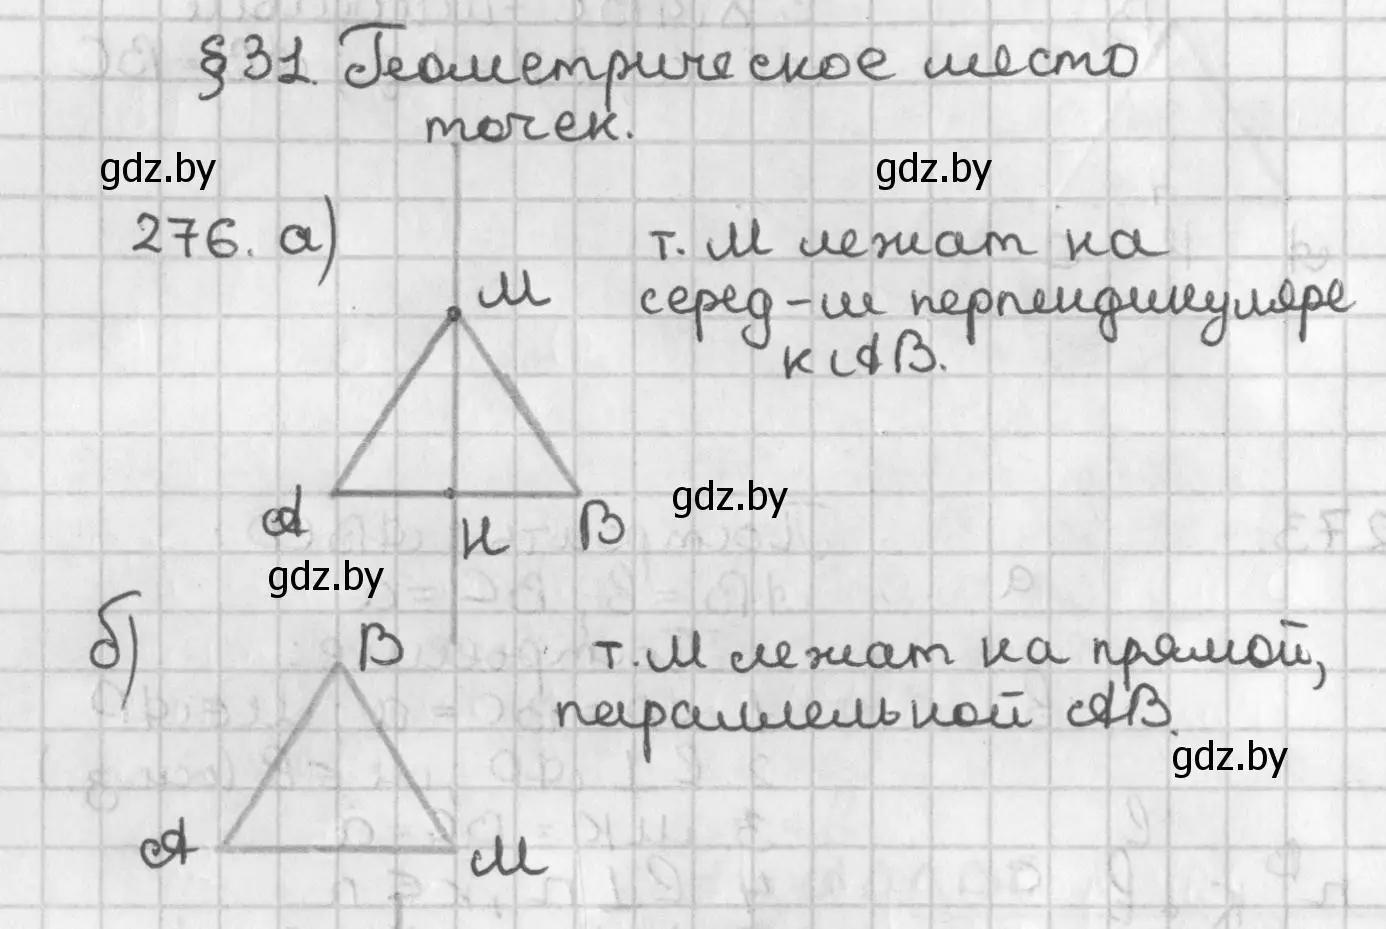 §31. Геометрическое место
точек.
gdz.by gdz.by
276. а)
М
т. М лежат на
серед-м перпендикуляре
к АВ.
А Н В
gdz.by
gdz.by
б)
В
т. М лежат на прямой,
параллельной АВ.
gdz.by
А М